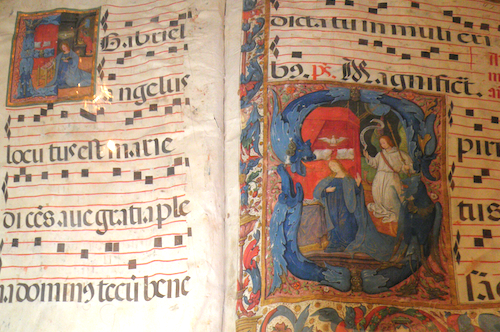 Gabriel
angelus
locutus est marie
dicēs ave gratia ple
na dominꝰ tecū bene
dicta tu in mulieri
bꝰ. ps. Magnificat.
piri
tus